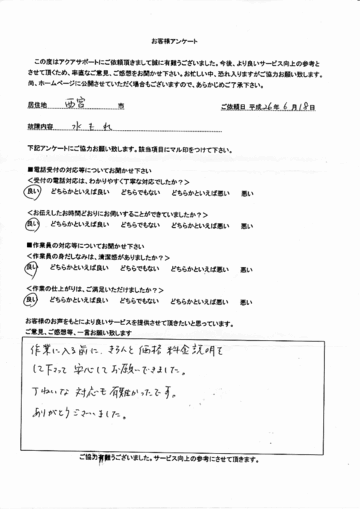 お客様アンケート
この度はアクアサポートにご依頼頂きまして誠に有難うございました。今後、より良いサービス向上の参考と
させて頂くため、率直なご意見、ご感想をお聞かせ下さい。お忙しい中、恐れ入りますがご協力お願い致します。
尚、ホームページに公開させていただく場合もございますので、あらかじめご了承下さい。
居住地 西宮 市 ご依頼日 平成26年6月18日
故障内容 水もれ
下記アンケートにご協力お願い致します。該当項目にマル印をつけて下さい。
■電話受付の対応等についてお聞かせ下さい
<受付の電話対応は、わかりやすく丁寧な対応でしたか?>
良い どちらかといえば良い どちらでもない どちらかといえば悪い 悪い
<お伝えしたお時間どおりにお伺いすることができていましたか?>
良い どちらかといえば良い どちらでもない どちらかといえば悪い 悪い
■作業員の対応等についてお聞かせ下さい
<作業員の身だしなみは、清潔感がありましたか?>
良い どちらかといえば良い どちらでもない どちらかといえば悪い 悪い
<作業の仕上がりは、ご満足いただけましたか?>
良い どちらかといえば良い どちらでもない どちらかといえば悪い 悪い
お客様のお声をもとにより良いサービスを提供させて頂きたいと思っています。
ご意見、ご感想等、一言お願い致します
作業に入る前に、きちんと価格 料金説明を
して下さって 安心してお願いできました。
丁ねいな 対応も有難かったです。
ありがとうございました。
ご協力有難うございました。サービス向上の参考にさせて頂きます。